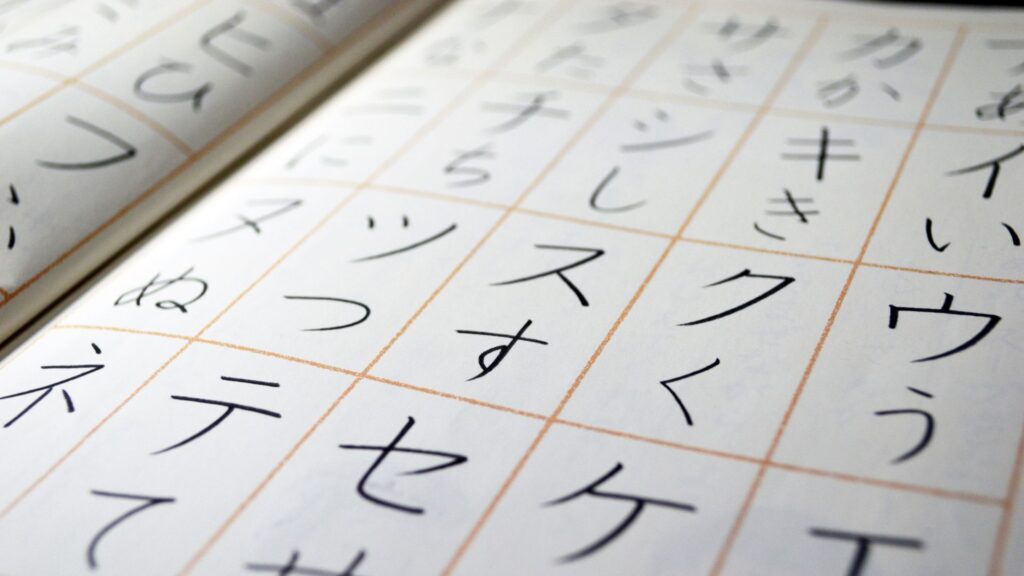 あイいウうエ
カかキきクくケ
サさシしスすセ
タたチちツつテて
なニにヌぬネ
ヒひフ
み